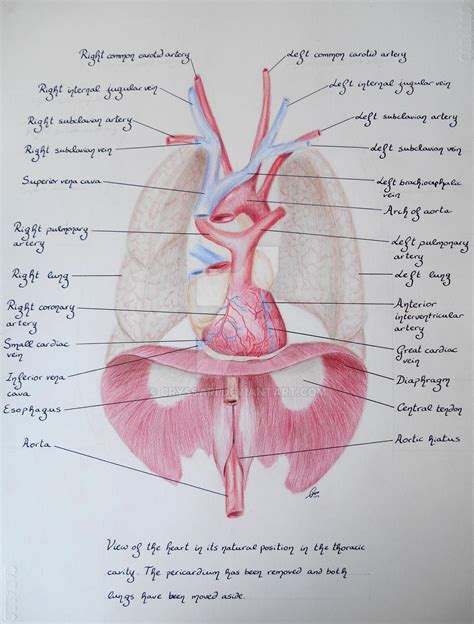 Right common carotid artery
Left common carotid artery
Right internal jugular vein
Left internal jugular vein
Right subclavian artery
Left subclavian artery
Right subclavian vein
Left subclavian vein
Superior vena cava
Left brachiocephalic
vein
Arch of aorta
Right pulmonary
artery
Left pulmonary
artery
Right lung
Left lung
Right coronary
artery
Anterior
interventricular
artery
Small cardiac
vein
Great cardiac
vein
Inferior vena
cava
Diaphragm
Esophagus
Central tendon
Aorta
Aortic hiatus
View of the heart in its natural position in the thoracic
cavity. The pericardium has been removed and both
lungs have been moved aside.